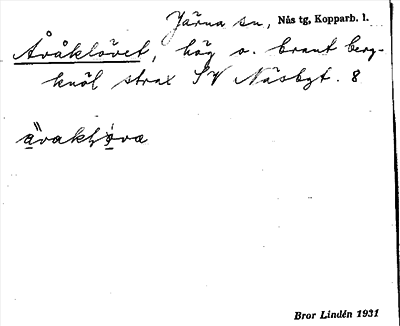 Järna sn, Nås tg, Kopparb. l.
Åvåklövet, hög o. brant berg-
knöl strax SV Näsbgt. 8
Bror Lindén 1931